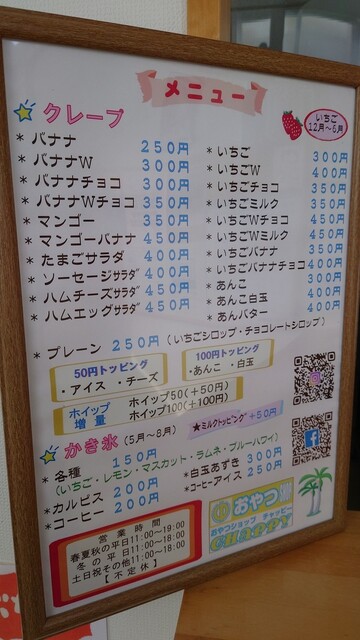 メニュー
クレープ
いちご
12月~6月
* バナナ 250円
* バナナW 300円
* バナナチョコ 300円
* バナナWチョコ 350円
* マンゴー 350円
* マンゴーバナナ 450円
* たまごサラダ 400円
* ソーセージサラダ 400円
* ハムチーズサラダ 450円
* ハムエッグサラダ 450円
* いちご 300円
* いちごW 400円
* いちごチョコ 350円
* いちごミルク 350円
* いちごWチョコ 450円
* いちごWミルク 450円
* いちごバナナ 350円
* いちごバナナチョコ 400円
* あんこ 300円
* あんこ白玉 400円
* あんバター 400円
* プレーン 250円 (いちごシロップ・チョコレートシロップ)
50円トッピング
・アイス ・チーズ
100円トッピング
・あんこ ・白玉
ホイップ増量 ホイップ50(+50円)
ホイップ100(+100円)
★ミルクトッピング +50円
かき氷 (5月~8月)
* 各種 150円
(いちご・レモン・マスカット・ラムネ・ブルーハワイ)
* カルピス 200円
* コーヒー 200円
* 白玉あずき 300円
* コーヒーアイス 250円
営業時間
春夏秋の平日 11:00~19:00
冬の平日 11:00~18:00
土日祝その他 11:00~18:00
【不定休】
おやつ
おやつショップ チャッピー
CHAPPY